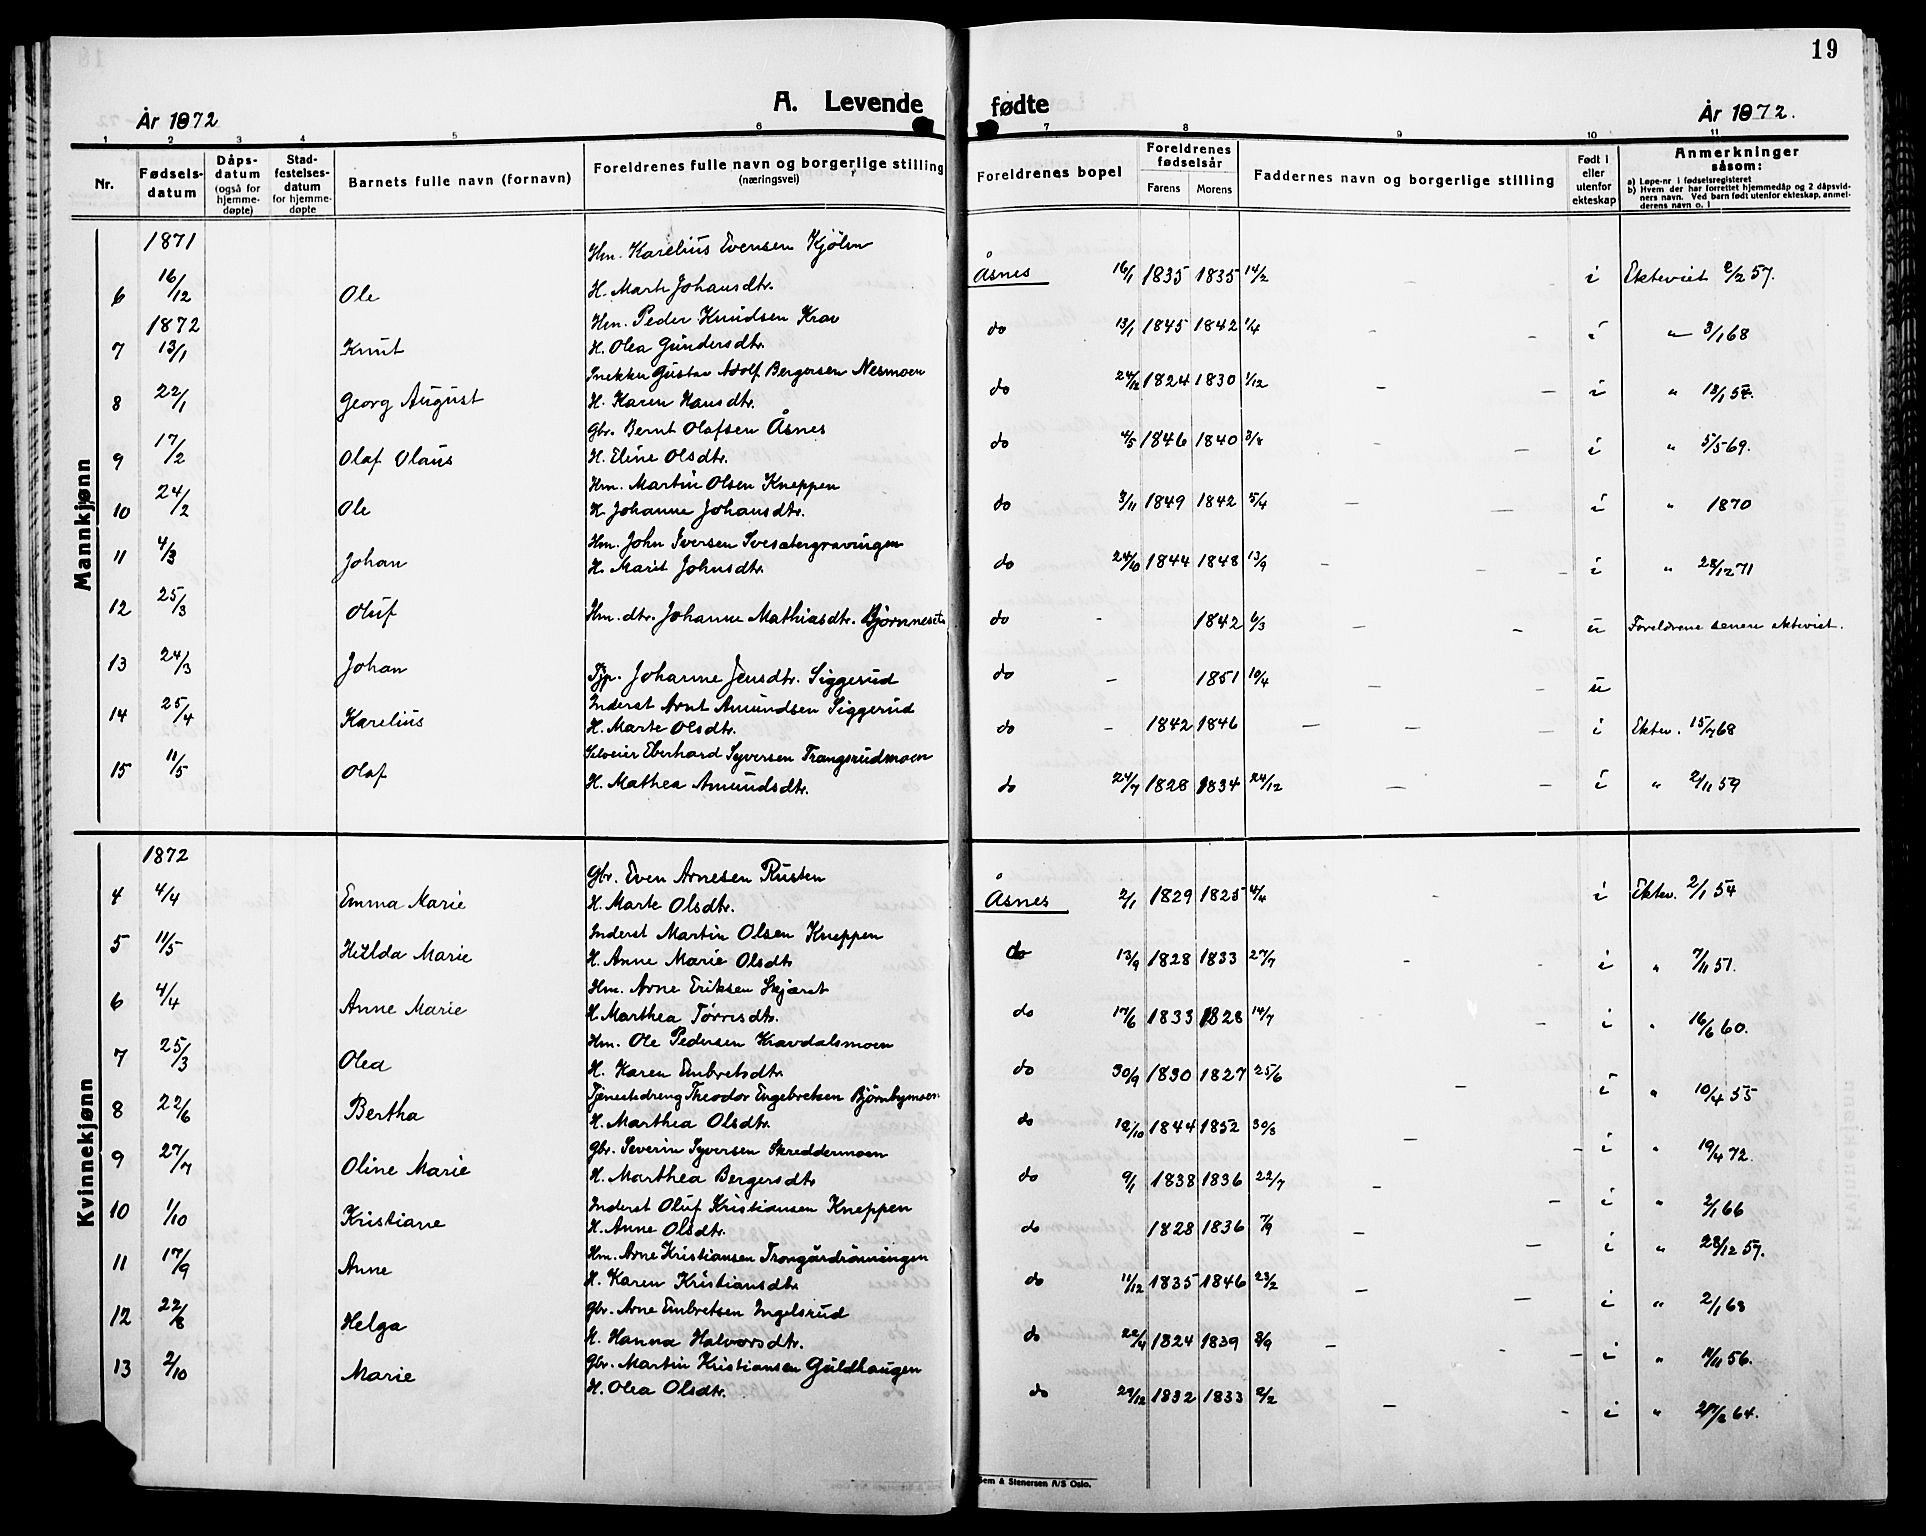 19
A. Levende fødte
År 1872
År 1872.
1 2 3 4 5 6 7 8 9 10 11
Nr.
Fødsels-
datum
Dåps-
datum
(også for
hjemme-
døpte)
Stad-
festelses-
datum
for hjemme-
døpte
Barnets fulle navn (fornavn)
Foreldrenes fulle navn og borgerlige stilling
(næringsvei)
Foreldrenes bopel
Foreldrenes
fødselsår
Farens Morens
Faddernes navn og borgerlige stilling
Født i
eller
utenfor
ekteskap
Anmerkninger
såsom:
a) Løpe-nr i fødselsregisteret
b) Hvem der har forrettet hjemmedåp og 2 dåpsvid-
ners navn. Ved barn født utenfor ekteskap, anmel-
derens navn o. l
Mannkjønn
1871
Hm. Karelius Evensen Kjølen
6 16/12 Ole H. Marte Johansdtr. Åsnes 16/1 1835 1835 14/2 i Ekteviet 2/2 57.
1872
Hm. Peder Knudsen Krav
7 13/1 Knut H. Olea Gundersdtr. do 13/1 1845 1842 1/4 - - i " 3/1 68
Snekker Gustav Adolf Bergersen Nesmoen
8 22/1 Georg August H. Karen Hansdtr. do 24/12 1824 1830 1/12 - - i " 13/1 54.
Gbr. Bernt Olafsen Åsnes
9 17/2 Olaf Olaus H. Eline Olsdtr. do 4/5 1846 1840 3/8 - i " 5/5 69.
Hm. Martin Olsen Kneppen
10 24/2 Ole H. Johanne Johansdtr. do 3/11 1849 1842 5/4 - - i " 1870
Hm. John Iversen Svesætergravingen
11 4/3 Johan H. Marit Johnsdtr. do 24/10 1844 1848 13/9 - - - i " 28/12 71
12 25/3 Oluf Hm. dtr. Johanne Mathiasdtr. Bjørnneset do - 1842 6/3 - - u Foreldrene senere ekteviet.
13 24/3 Johan Tjp. Johanne Jensdtr. Siggerud do - 1851 10/4 - - u
Inderst Arnt Amundsen Siggerud
14 25/4 Karelius H. Marte Olsdtr. do - 1842 1846 - - - i Ektev. 15/7 68
Selveier Eberhard Syversen Trangsrudmoen
15 11/5 Olaf H. Mathea Amundsdtr. do 24/7 1828 1834 24/12 - - i " 2/11 59
Kvinnekjønn
1872
Gbr. Even Arnesen Rusten
4 4/4 Emma Marie H. Marte Olsdtr. Åsnes 2/1 1829 1825 4/4 - i Ektev. 2/1 54
Inderst Martin Olsen Kneppen
5 11/5 Hilda Marie H. Anne Marie Olsdtr do 13/9 1828 1833 27/7 - - i " 7/11 51.
Hm. Arne Eriksen Skjæret
6 4/4 Anne Marie H. Marthea Tørrisdtr. do 17/6 1833 1828 14/7 i " 16/6 60.
Hm. Ole Pedersen Kravdalsmoen
7 25/3 Olea H. Karen Embretsdtr. do 30/9 1830 1827 25/6 - i " 10/4 55
Tjenestedreng Theodor Engebretsen Bjørnbymoen
8 22/6 Bertha H. Marthea Olsdtr. do 12/10 1844 1852 30/8 - i " 19/4 72.
Gbr. Severin Syversen Skreddermoen
9 27/7 Oline Marie H. Marthea Bergersdtr do 9/1 1838 1836 22/7 - - i " 2/1 66
Inderst Oluf Kristiansen Kneppen
10 1/10 Kristiane H. Anne Olsdtr. do 1828 1836 7/9 - - i " 28/12 57.
Hm. Arne Kristiansen Trongårdrønningen
11 17/9 Anne H. Karen Kristiansdtr do 11/12 1835 1846 23/2 - - i " 2/1 68
Gbr. Arne Embretsen Ingelsrud
12 22/8 Helga H. Hanna Halvorsdtr. do 22/4 1824 1839 8/9 - - i " 4/11 56.
Gbr. Martin Kristiansen Guldhaugen
13 2/10 Marie H. Olea Olsdtr. do 29/12 1832 1833 2/2 - - i " 64.
Sem & Stenersen A/S Oslo.